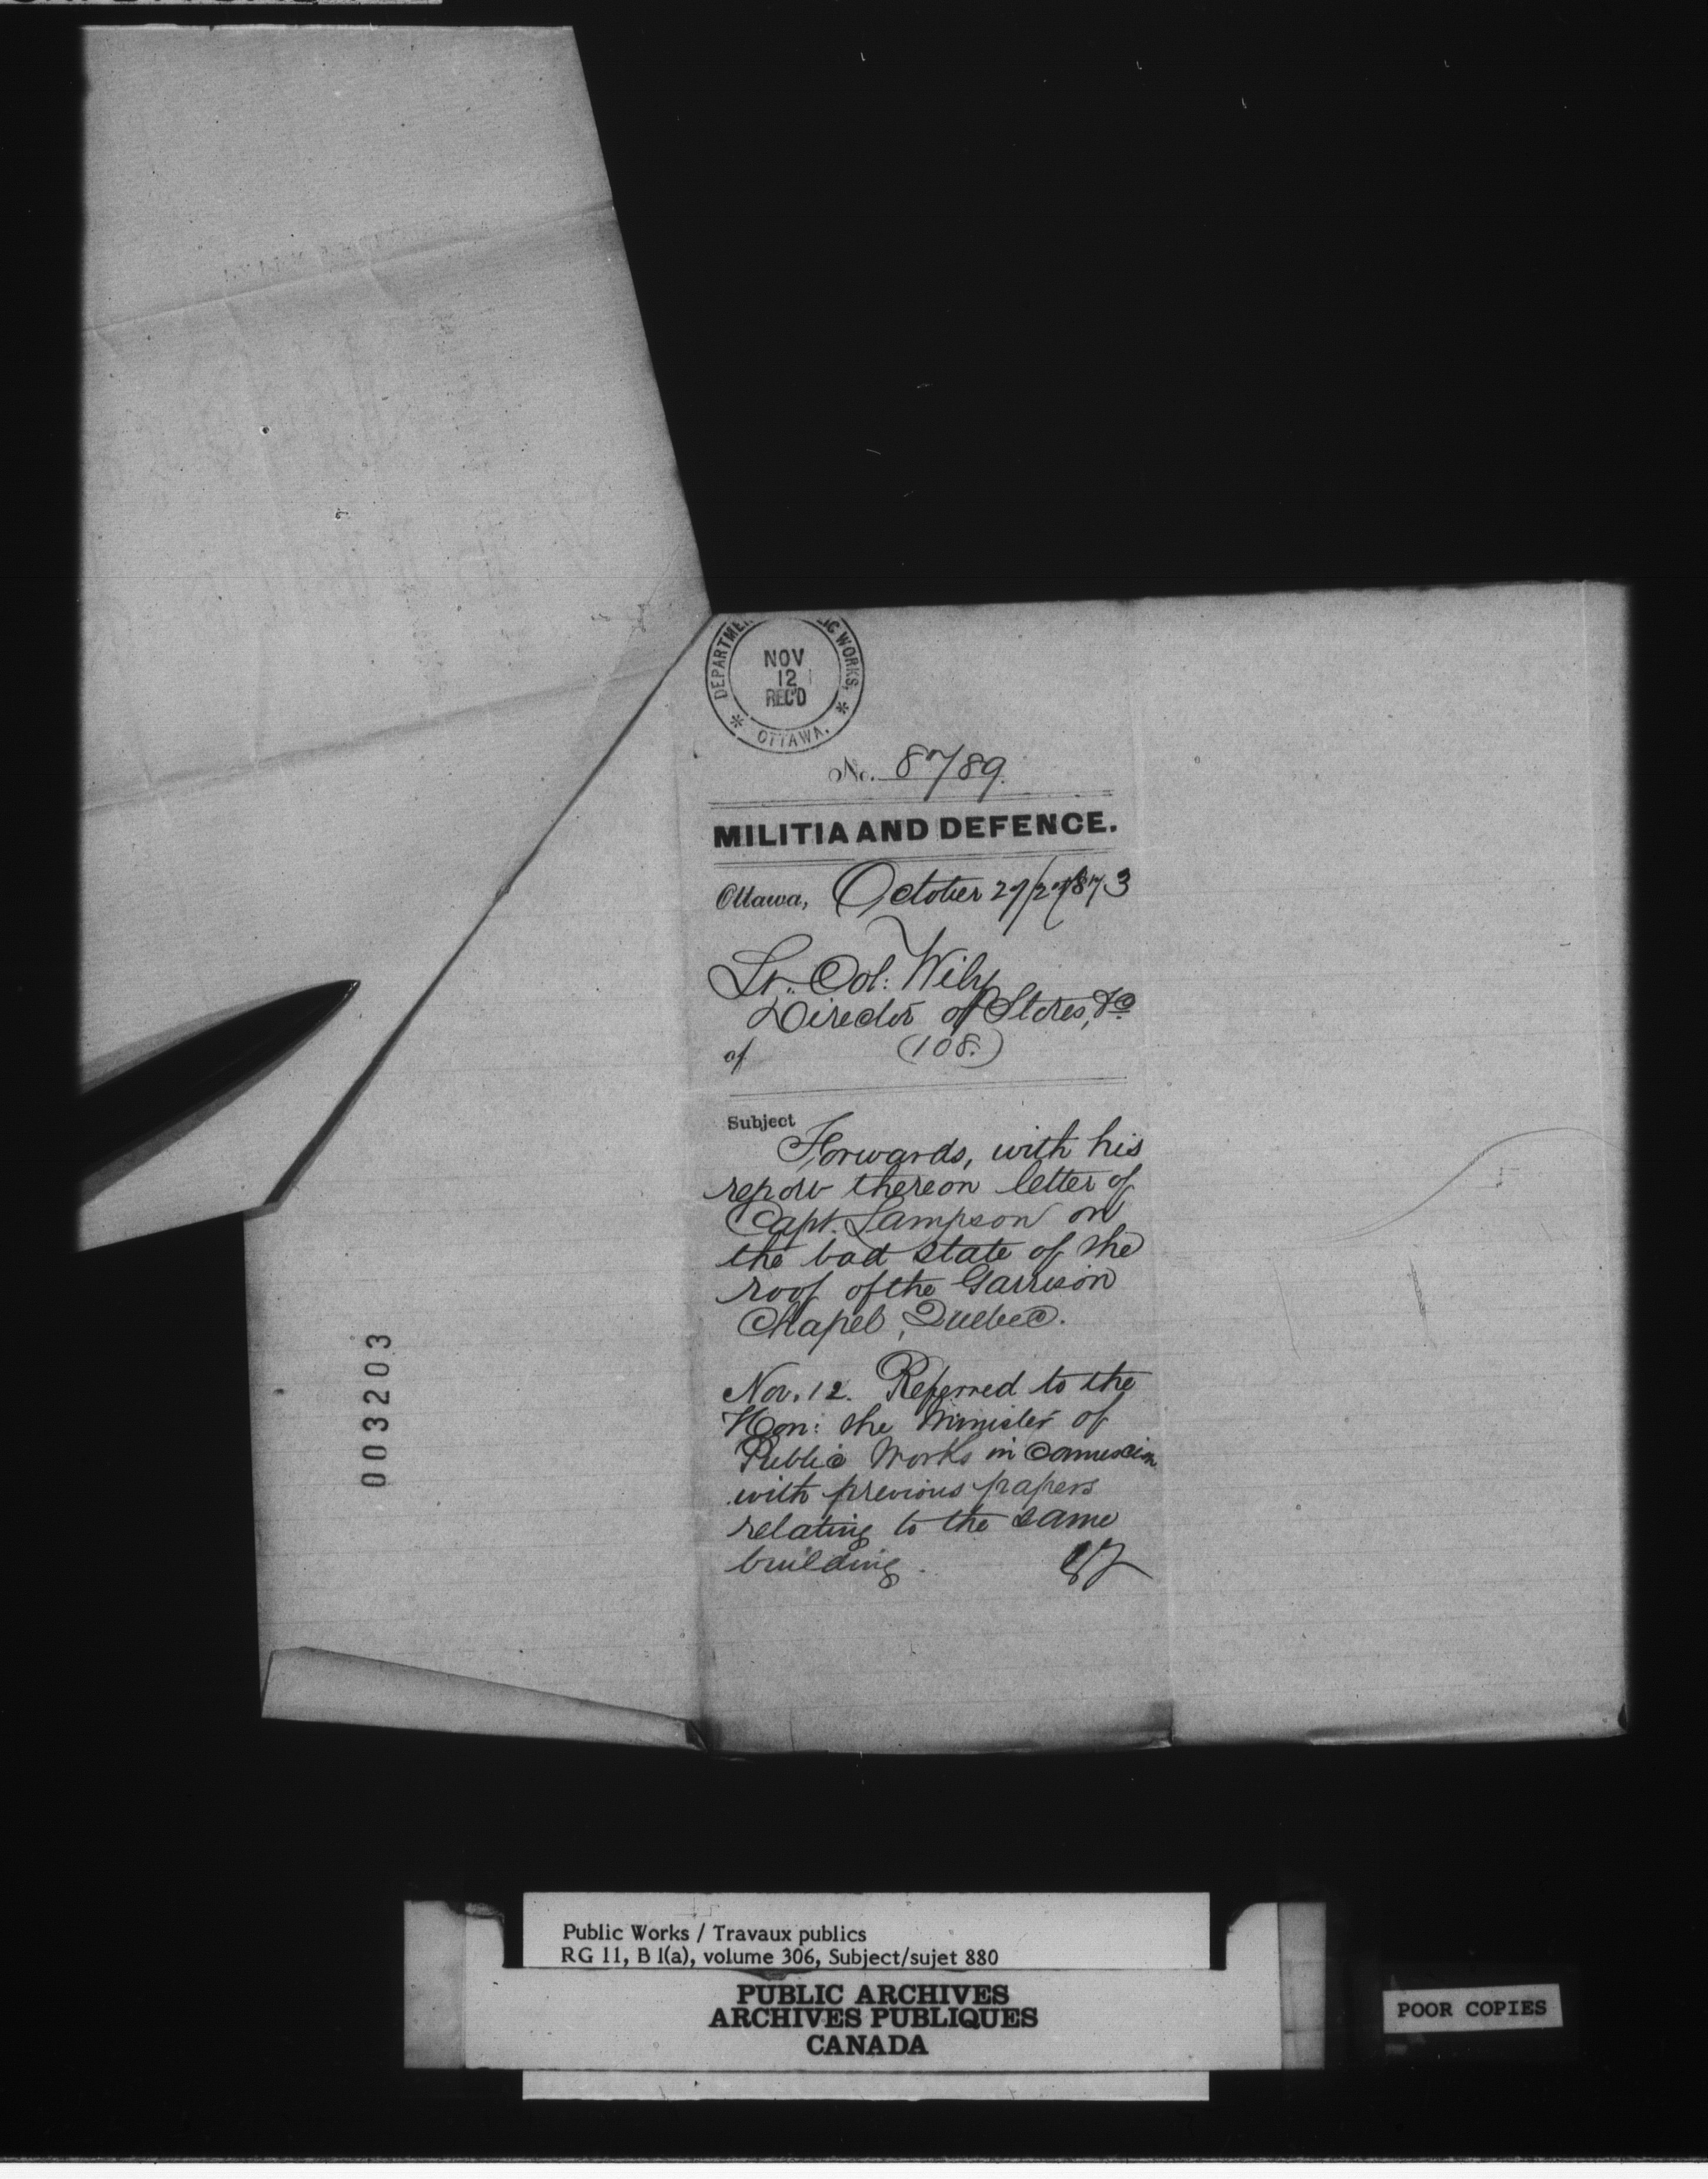 DEPARTME IC WORKS,
NOV
12
REC'D
* OTTAWA. *
No. 8789.
MILITIA AND DEFENCE.
Ottawa, October 27/ 1873
Lt. Col: Wily
Director of Stores, &c
of (108.)
Subject
Forwards, with his
report thereon letter of
Capt. Lampson on
the bad state of the
roof of the Garrison
Chapel, Quebec.
Nov. 12. Referred to the
Hon: the Minister of
Public Works in connexion
with previous papers
relating to the same
building.
003203
Public Works / Travaux publics
RG 11, B 1(a), volume 306, Subject/sujet 880
PUBLIC ARCHIVES
ARCHIVES PUBLIQUES
CANADA
POOR COPIES